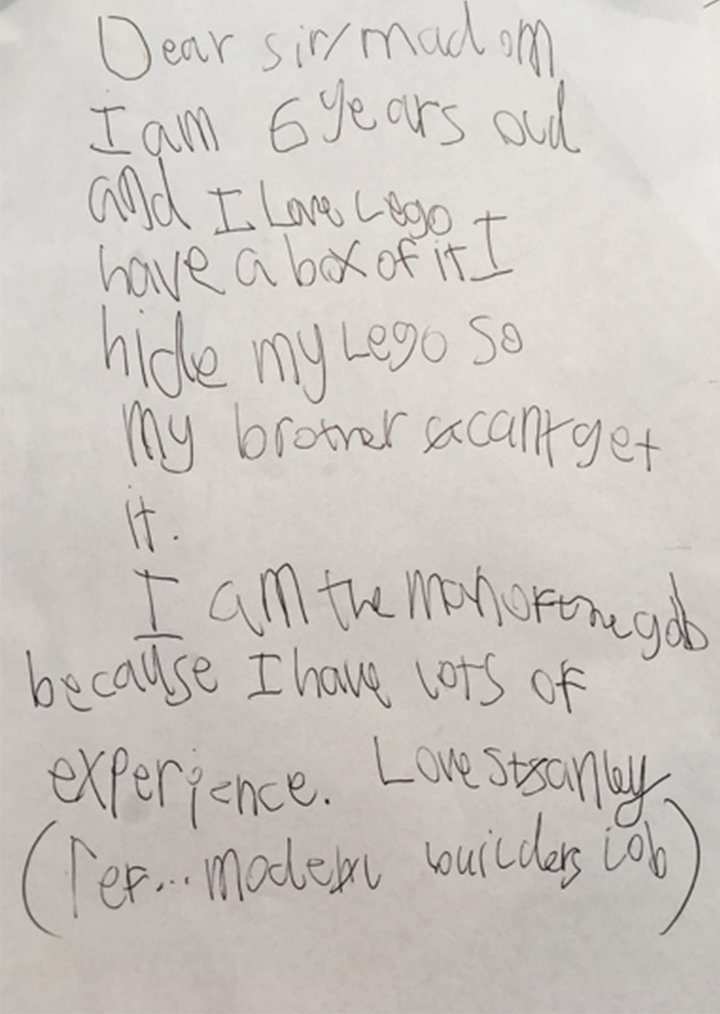 Dear sir/madom
I am 6 years oud
and I Love Lego I
have a box of it I
hide my Lego so
my brother cant get
it.
I am the man of the gob
because I have lots of
experience. Love Stanley
(ref... model builders iob)